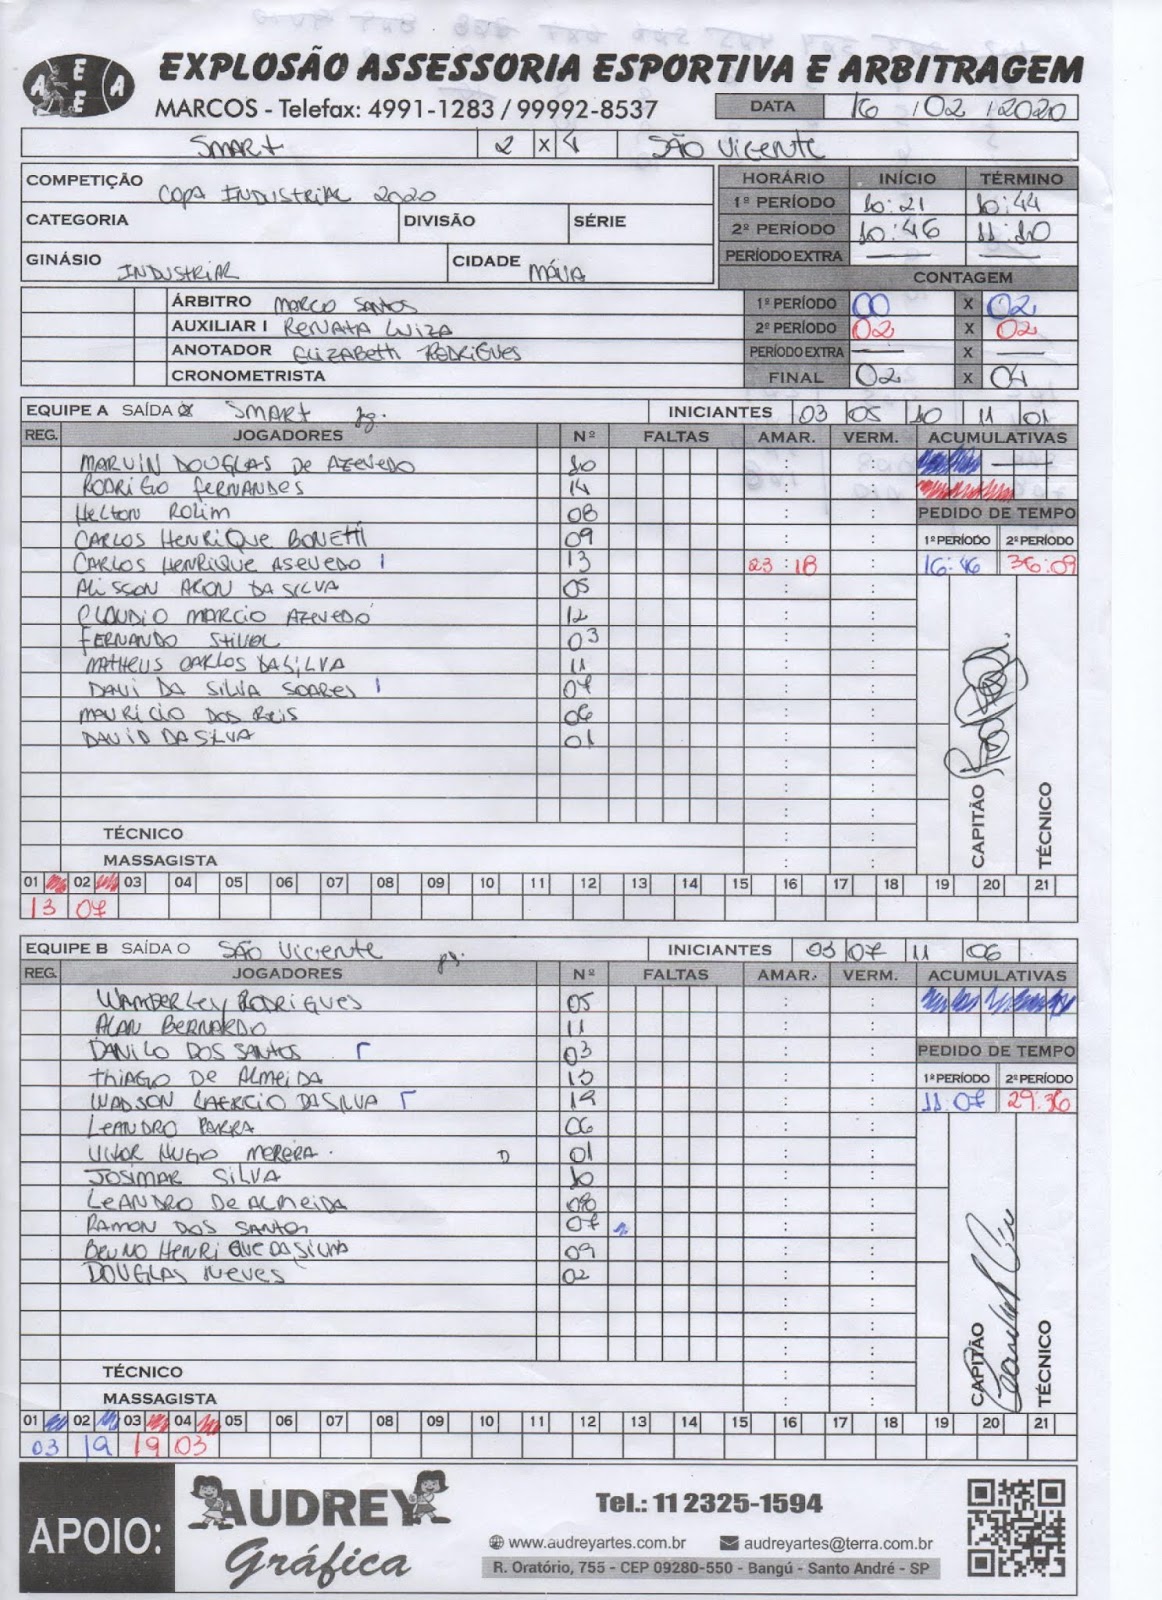 EXPLOSÃO ASSESSORIA ESPORTIVA E ARBITRAGEM
A E E E A
MARCOS - Telefax: 4991-1283 / 99992-8537
DATA 16 / 02 / 2020
SMART 2 X 4 SÃO VICENTE
COMPETIÇÃO COPA INDUSTRIAL 2020
HORÁRIO INÍCIO TÉRMINO
1º PERÍODO 10:21 10:44
CATEGORIA DIVISÃO SÉRIE
2º PERÍODO 10:46 11:10
PERÍODO EXTRA — —
GINÁSIO INDUSTRIAL CIDADE MAUA
CONTAGEM
ÁRBITRO MARCO SANTOS 1º PERÍODO 00 X 02
AUXILIAR I RENATA LUIZA 2º PERÍODO 02 X 02
ANOTADOR ELIZABETH RODRIGUES PERÍODO EXTRA — X —
CRONOMETRISTA FINAL 02 X 04
EQUIPE A SAÍDA X SMART INICIANTES 03 05 10 11 01
REG. JOGADORES Nº FALTAS AMAR. VERM. ACUMULATIVAS
MARVIN DOUGLAS DE AZEVEDO 10
RODRIGO FERNANDES 14
HELTON ROLIM 08 PEDIDO DE TEMPO
CARLOS HENRIQUE BONETTI 09 1º PERÍODO 2º PERÍODO
CARLOS HENRIQUE ASEVEDO 13 23:18 16:46 36:09
ALISSON ARON DA SILVA 05
CLAUDIO MARCIO AZEVEDO 12
FERNANDO 03
MATHEUS CARLOS DA SILVA 11
DAVI DA SILVA SOARES 07
MAURICIO DOS REIS 06
DAVID DA SILVA 01
TÉCNICO
MASSAGISTA
CAPITÃO TÉCNICO
01 02 03 04 05 06 07 08 09 10 11 12 13 14 15 16 17 18 19 20 21
13 07
EQUIPE B SAÍDA O SÃO VICENTE INICIANTES 03 07 11 06
REG. JOGADORES Nº FALTAS AMAR. VERM. ACUMULATIVAS
WAMBERLEY RODRIGUES 05
ALAN BERNARDO 11
DANILO DOS SANTOS 03 PEDIDO DE TEMPO
THIAGO DE ALMEIDA 13 1º PERÍODO 2º PERÍODO
WADSON LAERCIO DA SILVA 19 11:07 29:36
LEANDRO PARRA 06
VITOR HUGO MEREIRA 01
JOSIMAR SILVA 10
LEANDRO DE ALMEIDA 08
RAMON DOS SANTOS 07
BRUNO HENRIQUE DA SILVA 09
DOUGLAS NEVES 02
TÉCNICO
MASSAGISTA
CAPITÃO TÉCNICO
01 02 03 04 05 06 07 08 09 10 11 12 13 14 15 16 17 18 19 20 21
03 19 19 03
APOIO:
AUDREY
Gráfica
Tel.: 11 2325-1594
www.audreyartes.com.br audreyartes@terra.com.br
R. Oratório, 755 - CEP 09280-550 - Bangú - Santo André - SP